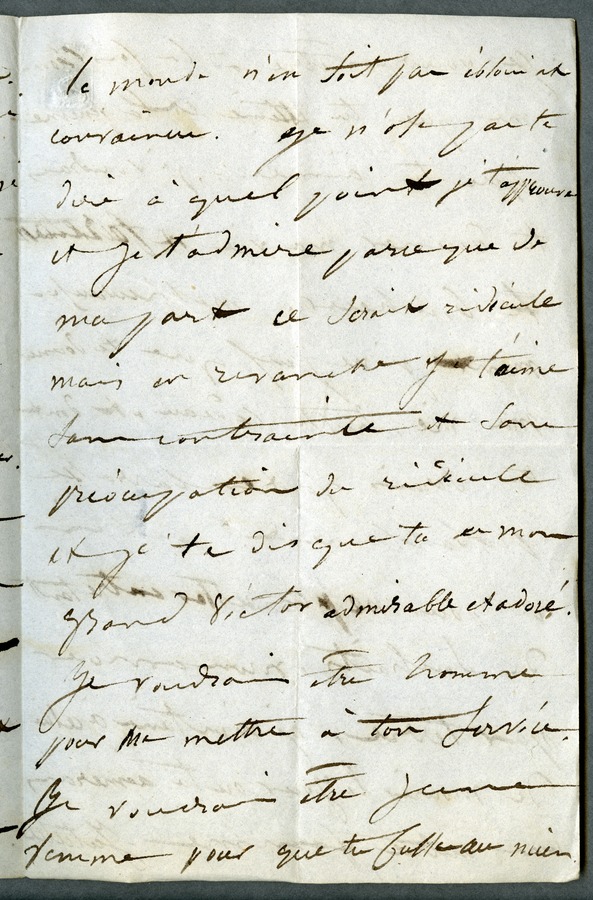 le monde n'en soit pas ébloui et
convaincu. je n'ose pas te
dire à quel point je t'approuve
et je t'admire parce que de
ma part ce serait ridicule
mais en revanche je t'aime
sans contrainte et sans
préocupation du ridicule
et je te dis que tu es mon
grand Victor admirable et adoré.
Je voudrais être homme
pour me mettre à ton service.
Je voudrais être jeune
femme pour que tu fusses au mien